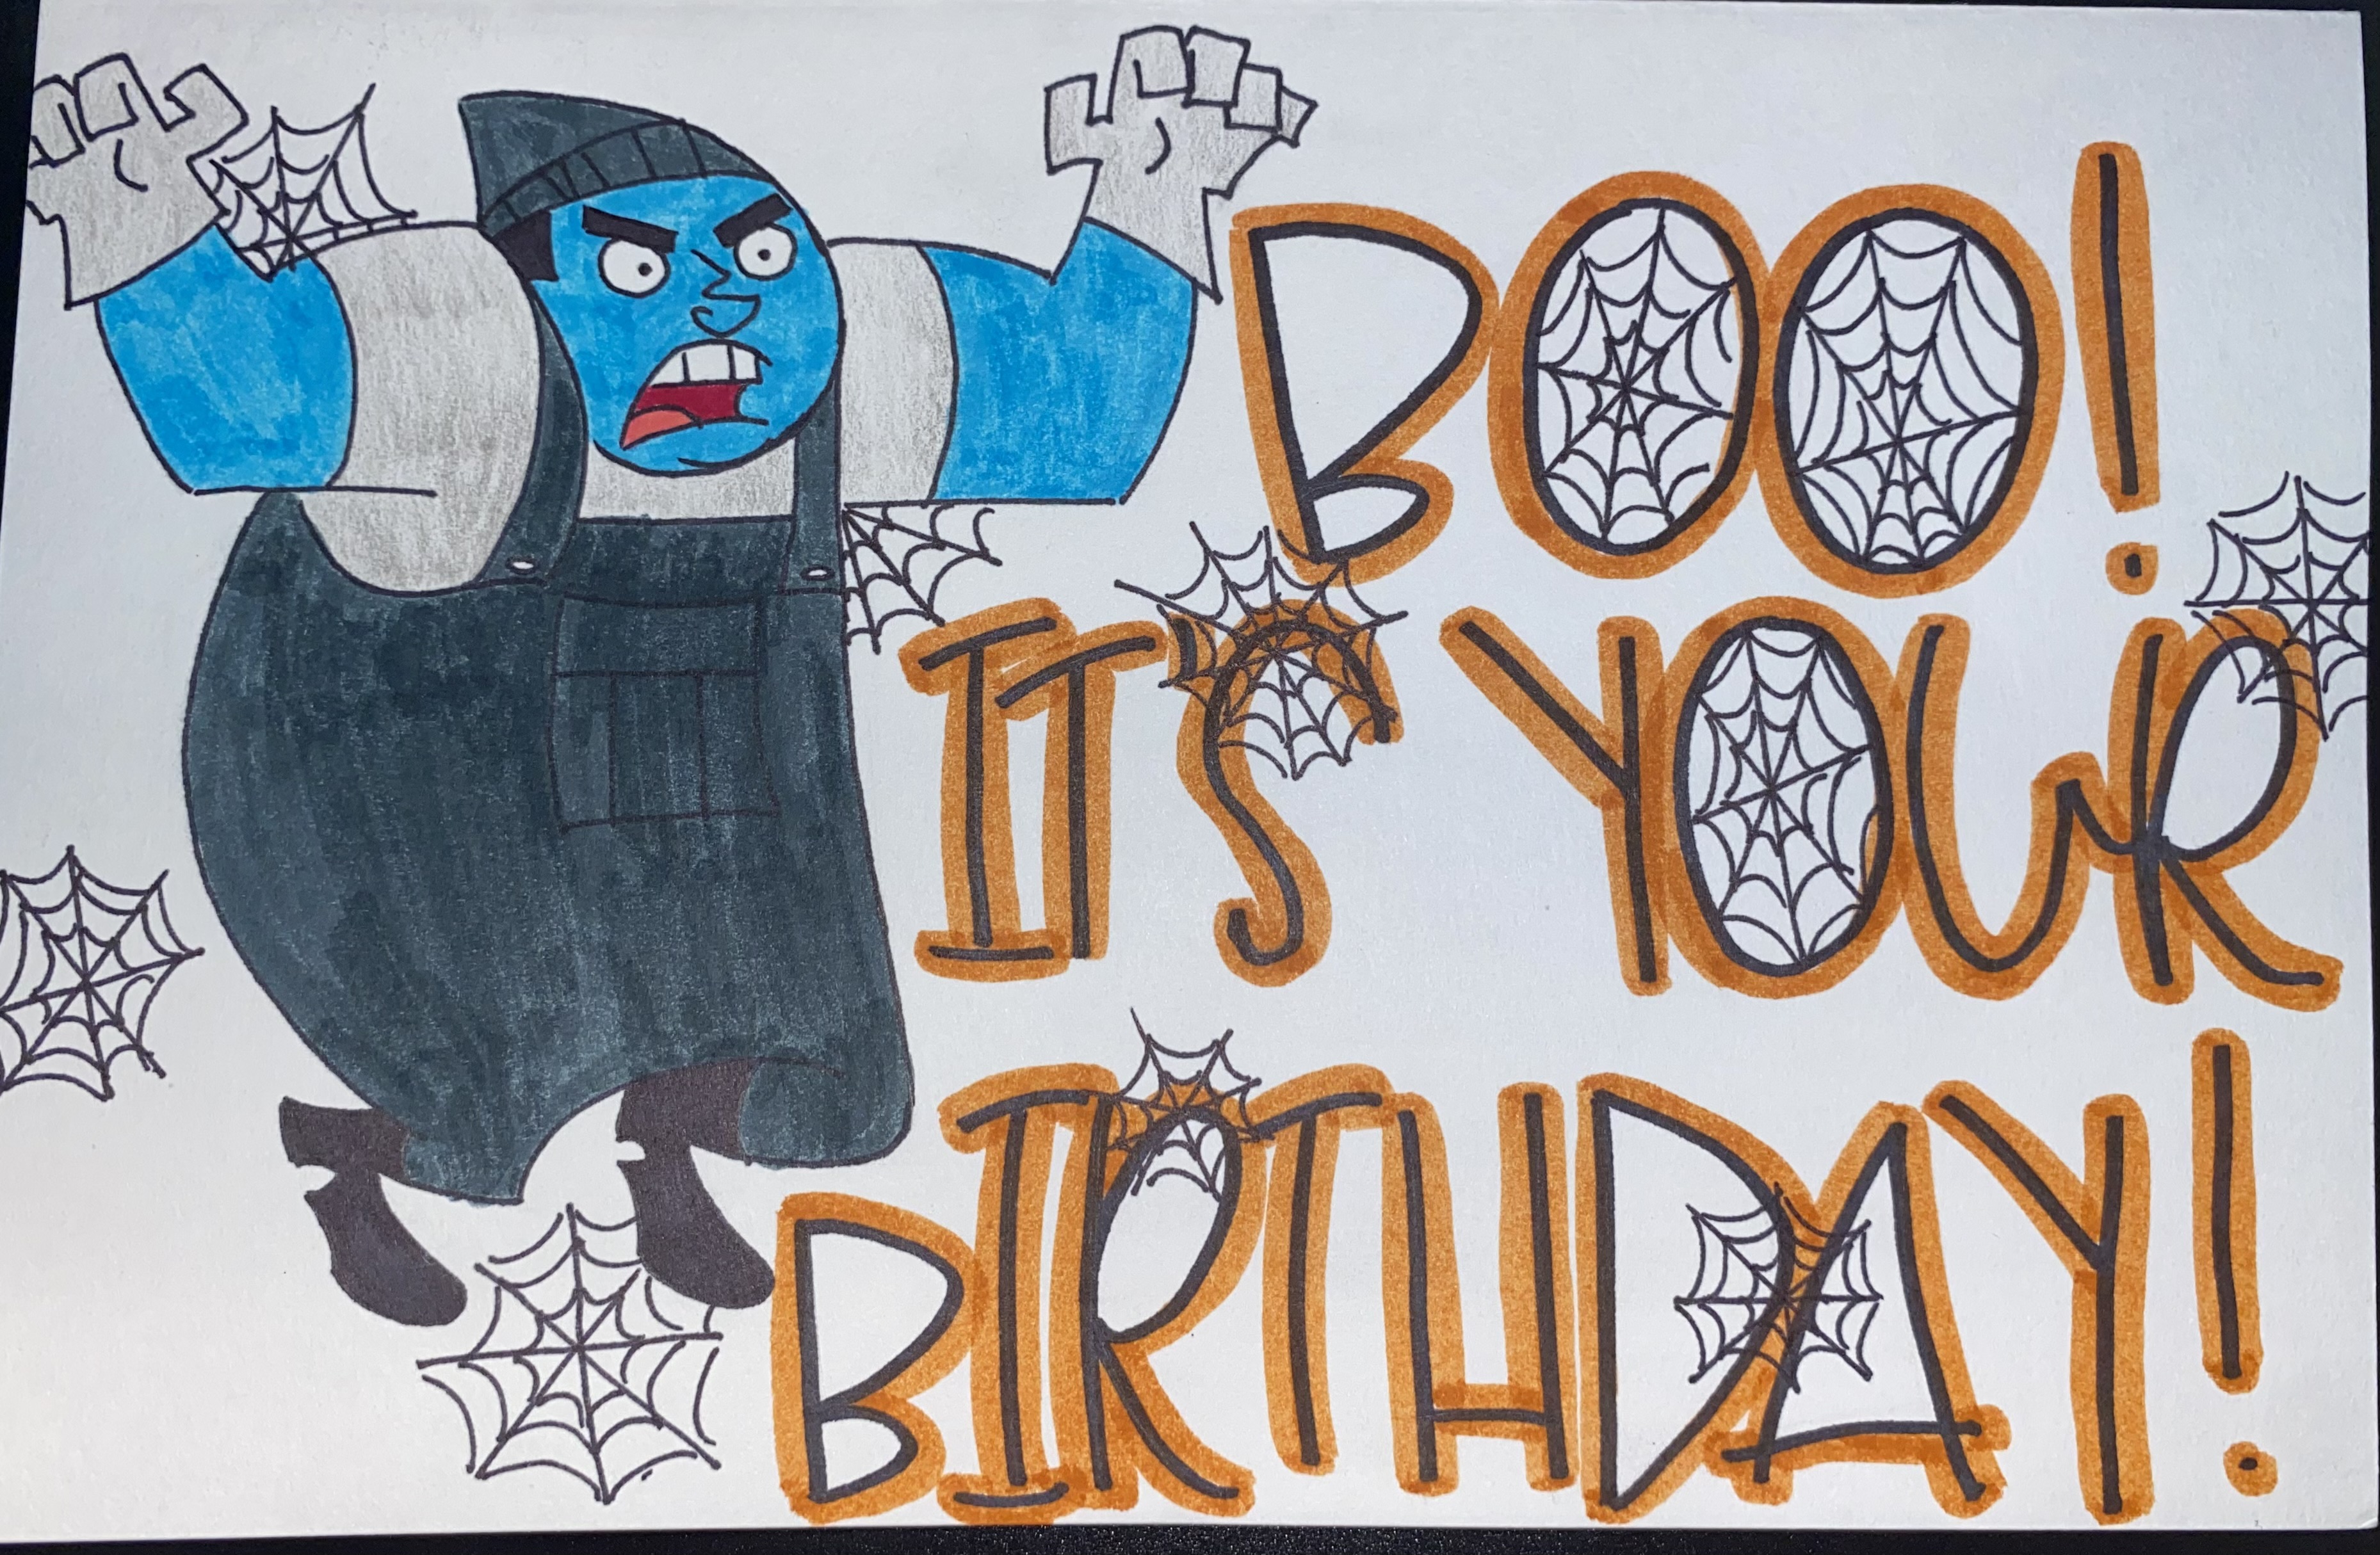 BOO!
IT'S YOUR
BIRTHDAY!